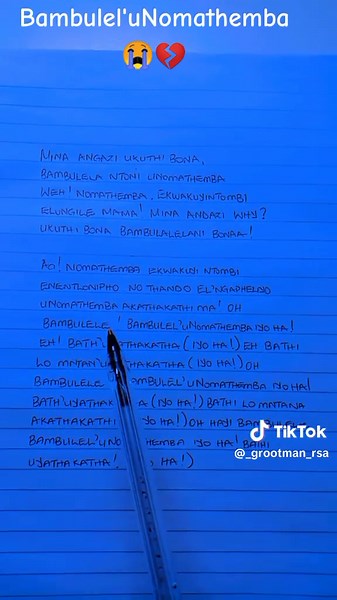 Bambulel'uNomathemba
😭💔
MINA ANGAZI UKUTHI BONA,
BAMBULELA NTONI UNOMATHEMBA
WEH! NOMATHEMBA, EKWAKUYINTOMBI
ELUNGILE MAMA! MINA ANDAZI WHY?
UKUTHI BONA BAMBULALELANI BONAA!
AO! NOMATHEMBA EKWAKUYINTOMBI
ENENTLONIPHO NO THANDO
UNOMATHEMBA AKATHAKATHI MA! OH
BAMBULELE ! BAMBULEL'UNOMATHEMBA IYO HA!
EH! BATH' (IYO HA!) EH BATHI
LO MNTAN' (IYO HA!) OH
BAMBULELE UNOMATHEMBA IYO HA!
BATH'UYATHAKA (IYO HA!) BATHI LO MNTANA
AKATHAKATHI YO HA!) OH HAYI
BAMBULEL'UNO HEMBA IYO HA! BATHI
UYATHAKATHA! HA!)
TikTok
@_grootman_rsa